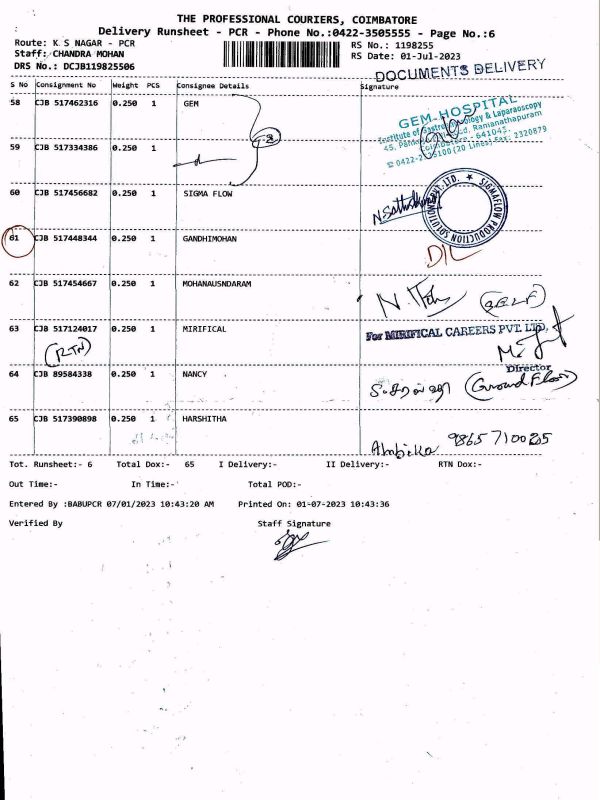 THE PROFESSIONAL COURIERS, COIMBATORE
Delivery Runsheet - PCR - Phone No.:0422-3505555 - Page No.:6
Route: K S NAGAR - PCR
RS No.: 1198255
Staff: CHANDRA MOHAN
RS Date: 01-Jul-2023
DRS No.: DCJB119825506
DOCUMENTS DELIVERY
S No Consignment No Weight PCS Consignee Details Signature
58 CJB 517462316 0.250 1 GEM
GEM HOSPITAL
Institute of Gastroenterology & Laparoscopy
Ramanathapuram
Coimbatore - 641045
59 CJB 517334386 0.250 1
60 CJB 517456682 0.250 1 SIGMA FLOW
SIGMAFLOW PRODUCTION SOLUTION PVT. LTD.
61 CJB 517448344 0.250 1 GANDHIMOHAN
D/L
62 CJB 517454667 0.250 1 MOHANAUSNDARAM
(SELF)
63 CJB 517124017 0.250 1 MIRIFICAL
For MIRIFICAL CAREERS PVT. LTD,
(RTN)
Director
64 CJB 89584338 0.250 1 NANCY
(Ground Floor)
65 CJB 517390898 0.250 1 HARSHITHA
Ambika 9865710025
Tot. Runsheet:- 6 Total Dox:- 65 I Delivery:- II Delivery:- RTN Dox:-
Out Time:- In Time:- Total POD:-
Entered By :BABUPCR 07/01/2023 10:43:20 AM Printed On: 01-07-2023 10:43:36
Verified By Staff Signature